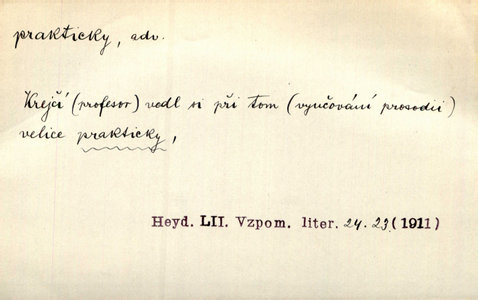 prakticky, adv.
Krejčí (profesor) vedl si při tom (vyučování prosodii)
velice prakticky,
Heyd. LII. Vzpom. liter. 24. 23. (1911)